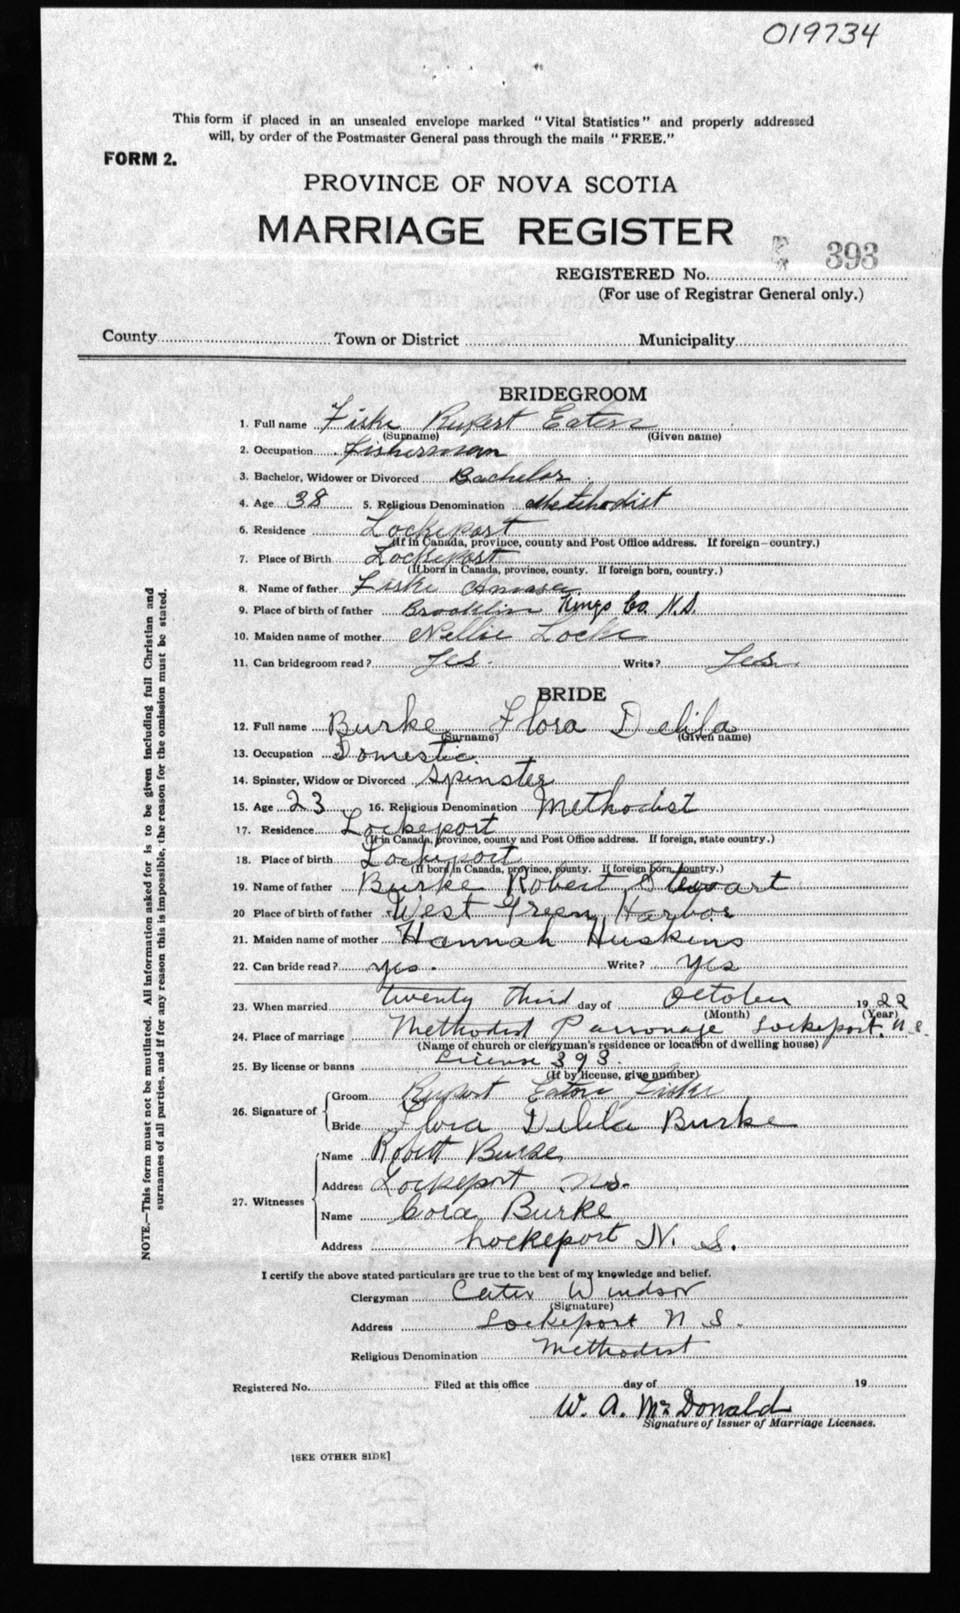 019734
This form if placed in an unsealed envelope marked "Vital Statistics" and properly addressed
will, by order of the Postmaster General pass through the mails "FREE."
FORM 2.
PROVINCE OF NOVA SCOTIA
MARRIAGE REGISTER
393
REGISTERED No.
(For use of Registrar General only.)
County Town or District Municipality
BRIDEGROOM
1. Full name Fiske Rupert Eaton
(Surname) (Given name)
2. Occupation Fisherman
3. Bachelor, Widower or Divorced Bachelor
4. Age 38 5. Religious Denomination Methodist
6. Residence Lockeport
(If in Canada, province, county and Post Office address. If foreign—country.)
7. Place of Birth Lockeport
(If born in Canada, province, county. If foreign born, country.)
8. Name of father Fiske Amasa
9. Place of birth of father Brooklin Kings Co. N.S.
10. Maiden name of mother Nellie Locke
11. Can bridegroom read? Yes. Write? Yes.
BRIDE
12. Full name Burke Flora Delila
(Surname) (Given name)
13. Occupation Domestic
14. Spinster, Widow or Divorced Spinster
15. Age 23 16. Religious Denomination Methodist
17. Residence Lockeport
(If in Canada, province, county and Post Office address. If foreign, state country.)
18. Place of birth Lockeport
(If born in Canada, province, county. If foreign born, country.)
19. Name of father Burke Robert Stewart
20 Place of birth of father West Green Harbor
21. Maiden name of mother Hannah Huskins
22. Can bride read? yes. Write? yes
23. When married twenty third day of October 1922
(Month) (Year)
24. Place of marriage Methodist Parsonage Lockeport. N.S.
(Name of church or clergyman's residence or location of dwelling house)
25. By license or banns License 393.
(If by license, give number)
26. Signature of Groom Rupert Eaton Fiske
Bride Flora Delila Burke
27. Witnesses Name Robert Burke
Address Lockeport N.S.
Name Cora Burke
Address Lockeport N. S.
I certify the above stated particulars are true to the best of my knowledge and belief.
Clergyman Cater Windsor
(Signature)
Address Lockeport N S.
Religious Denomination Methodist
Registered No. Filed at this office day of 19
W. A. McDonald
Signature of Issuer of Marriage Licenses.
[SEE OTHER SIDE]
NOTE.—This form must not be mutilated. All information asked for is to be given including full Christian and
surnames of all parties, and if for any reason this is impossible, the reason for the omission must be stated.